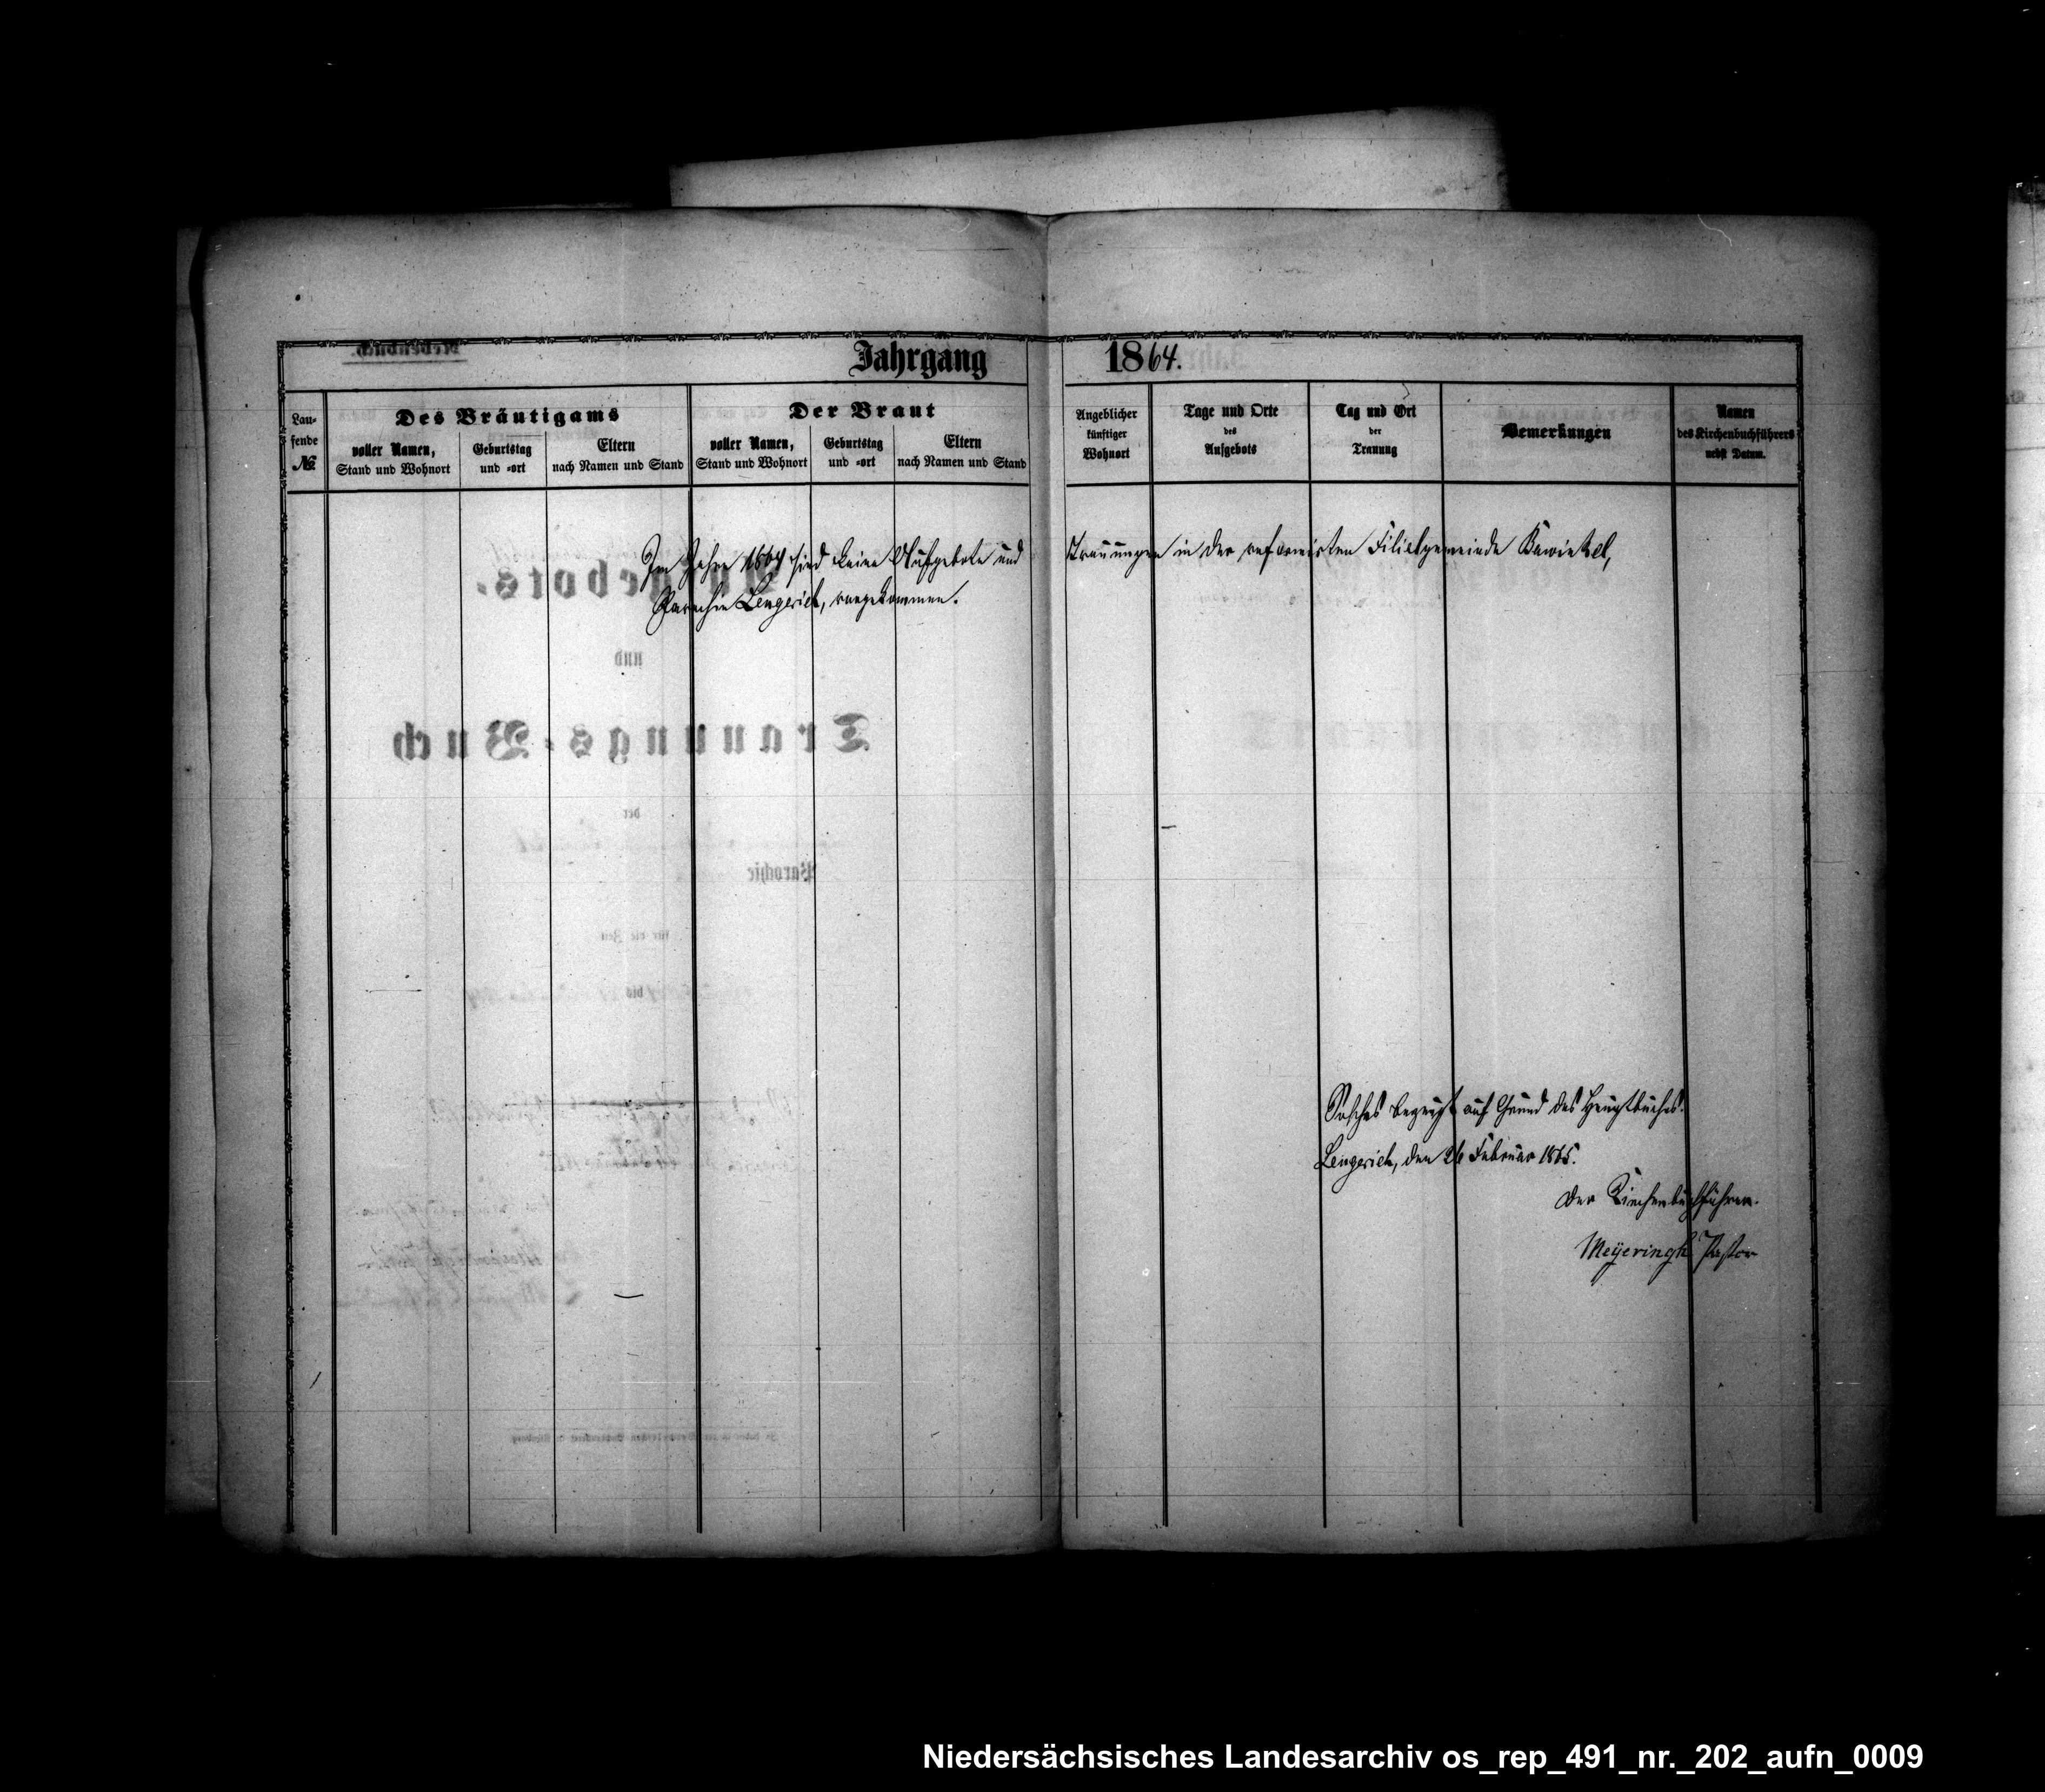 Jahrgang 1864.
Lau-
fende
№
Des Bräutigams
voller Namen,
Stand und Wohnort
Geburtstag
und -ort
Eltern
nach Namen und Stand
Der Braut
voller Namen,
Stand und Wohnort
Geburtstag
und -ort
Eltern
nach Namen und Stand
Angeblicher
künftiger
Wohnort
Tage und Orte
des
Aufgebots
Tag und Ort
der
Trauung
Bemerkungen
Namen
des Kirchenbuchführers
nebst Datum.
Im Jahre 1864 sind keine Aufgebote und Trauungen in der reformirten Filialgemeinde Bawinkel,
Parochie Lengerich, vorgekommen.
Solches bezeugt auf Grund des Hauptbuches.
Lengerich, den 26 Februar 1865.
Der Kirchenbuchführer.
Meyeringh Pastor
Nebenbuch.
Aufgebots-
und
Trauungs-Buch
der
Parochie
für die Zeit
bis
Niedersächsisches Landesarchiv os_rep_491_nr._202_aufn_0009